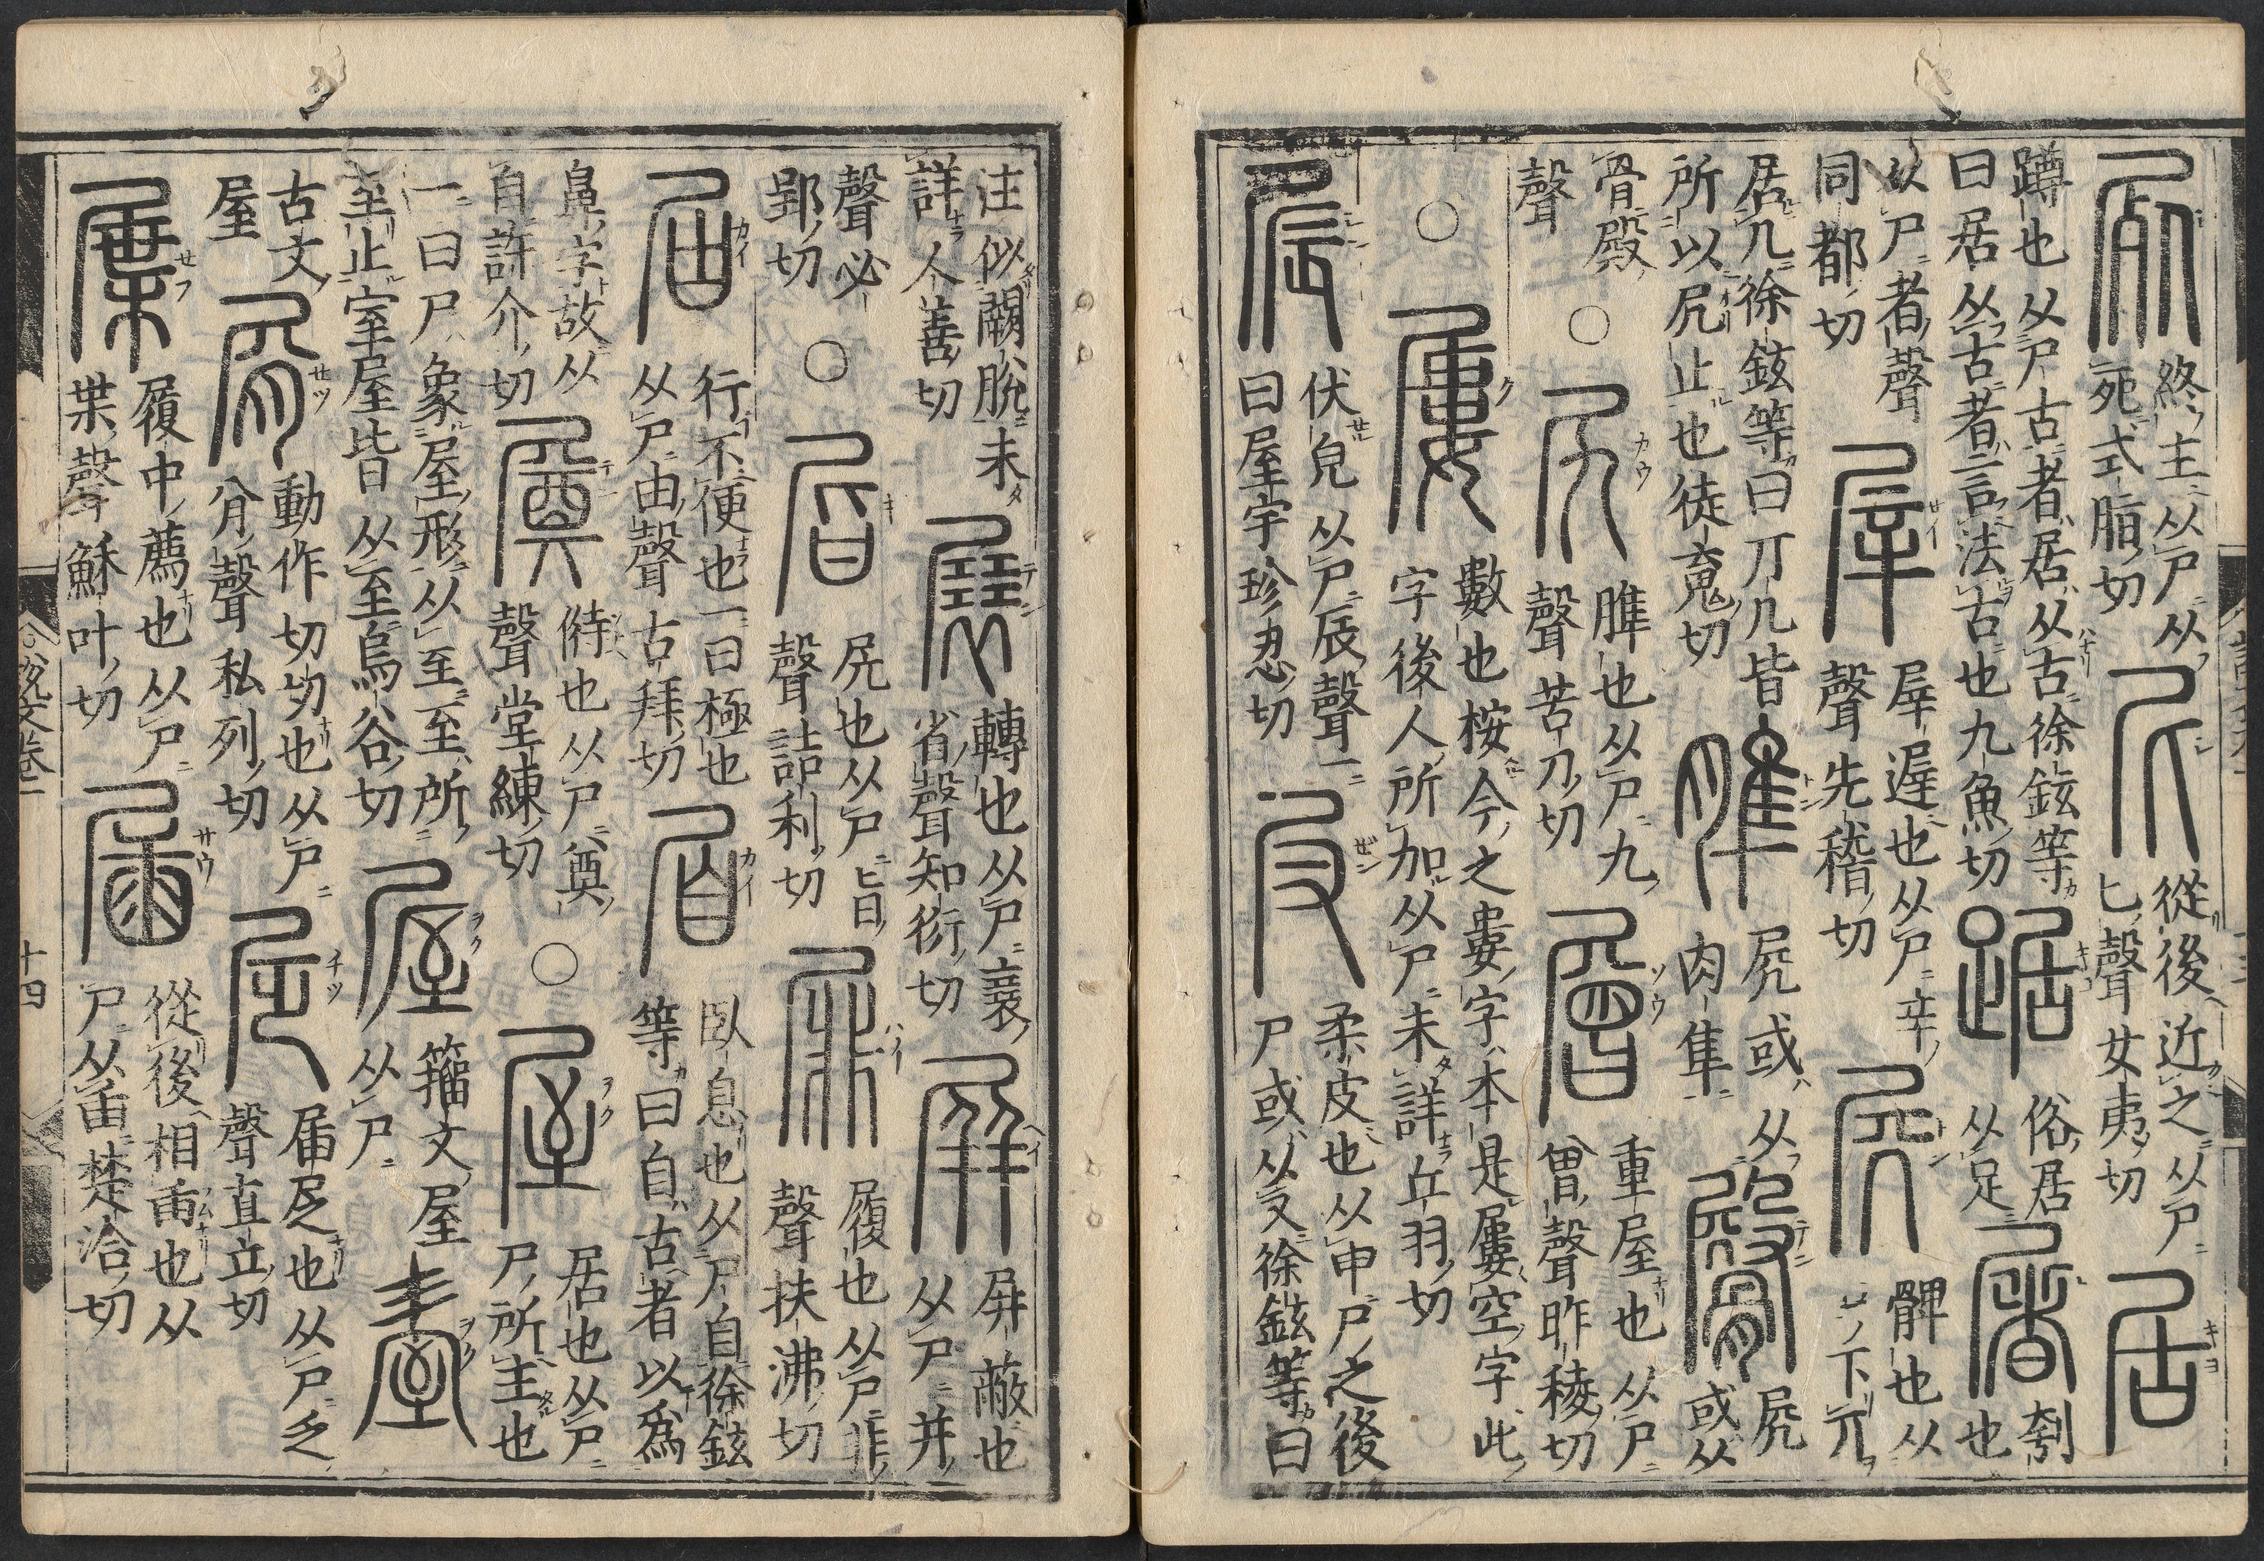 屍
終主从尸从
死式脂切
尼
從後近之从尸
匕聲女夷切
居
蹲也从尸古者居从古徐鉉等
曰居从古者言法古也九魚切
踞
俗居
从足
屠
刳
也
从尸者聲
同都切
屖
屖遟也从尸辛
聲先稽切
𡱒
髀也从
尸下丌
居几徐鉉等曰丌几皆
所以凥止也徒䰟切
脽
𡱒或从
肉隼
臀
𡱒
或从
骨殿
聲
○
尻
脽也从尸九
聲苦刀切
層
重屋也从尸
曾聲昨稜切
○
屢
數也桉今之婁字本是屢空字此
字後人所加从尸未詳丘羽切
𡱠
伏皃从尸辰聲一
曰屋宇珍忍切
𡰫
柔皮也从申尸之後
尸或从又徐鉉等曰
注似闕脫未
詳人善切
展
轉也从尸𧝑
省聲知衍切
屏
屏蔽也
从尸并
聲必
郢切
○
㞓
尻也从尸旨
聲詰利切
屝
履也从尸非
聲扶沸切
届
行不便也一曰極也
从尸由聲古拜切
𡱰
臥息也从尸自徐鉉
等曰自古者以爲
鼻字故从
自許介切
𡳐
偫也从尸奠
聲堂練切
○
屋
居也从尸
尸所主也
一曰尸象屋形从至至所
至止室屋皆曰从至烏谷切
籒文屋
从尸
古文
屋
㞕
動作切切也从尸
䏌聲私列切
𡰴
届𡰴也从尸乏
聲直立切
屧
履中薦也从尸
枼聲穌叶切
㞚
從後相臿也从
尸从臿楚洽切
說文卷二
十四